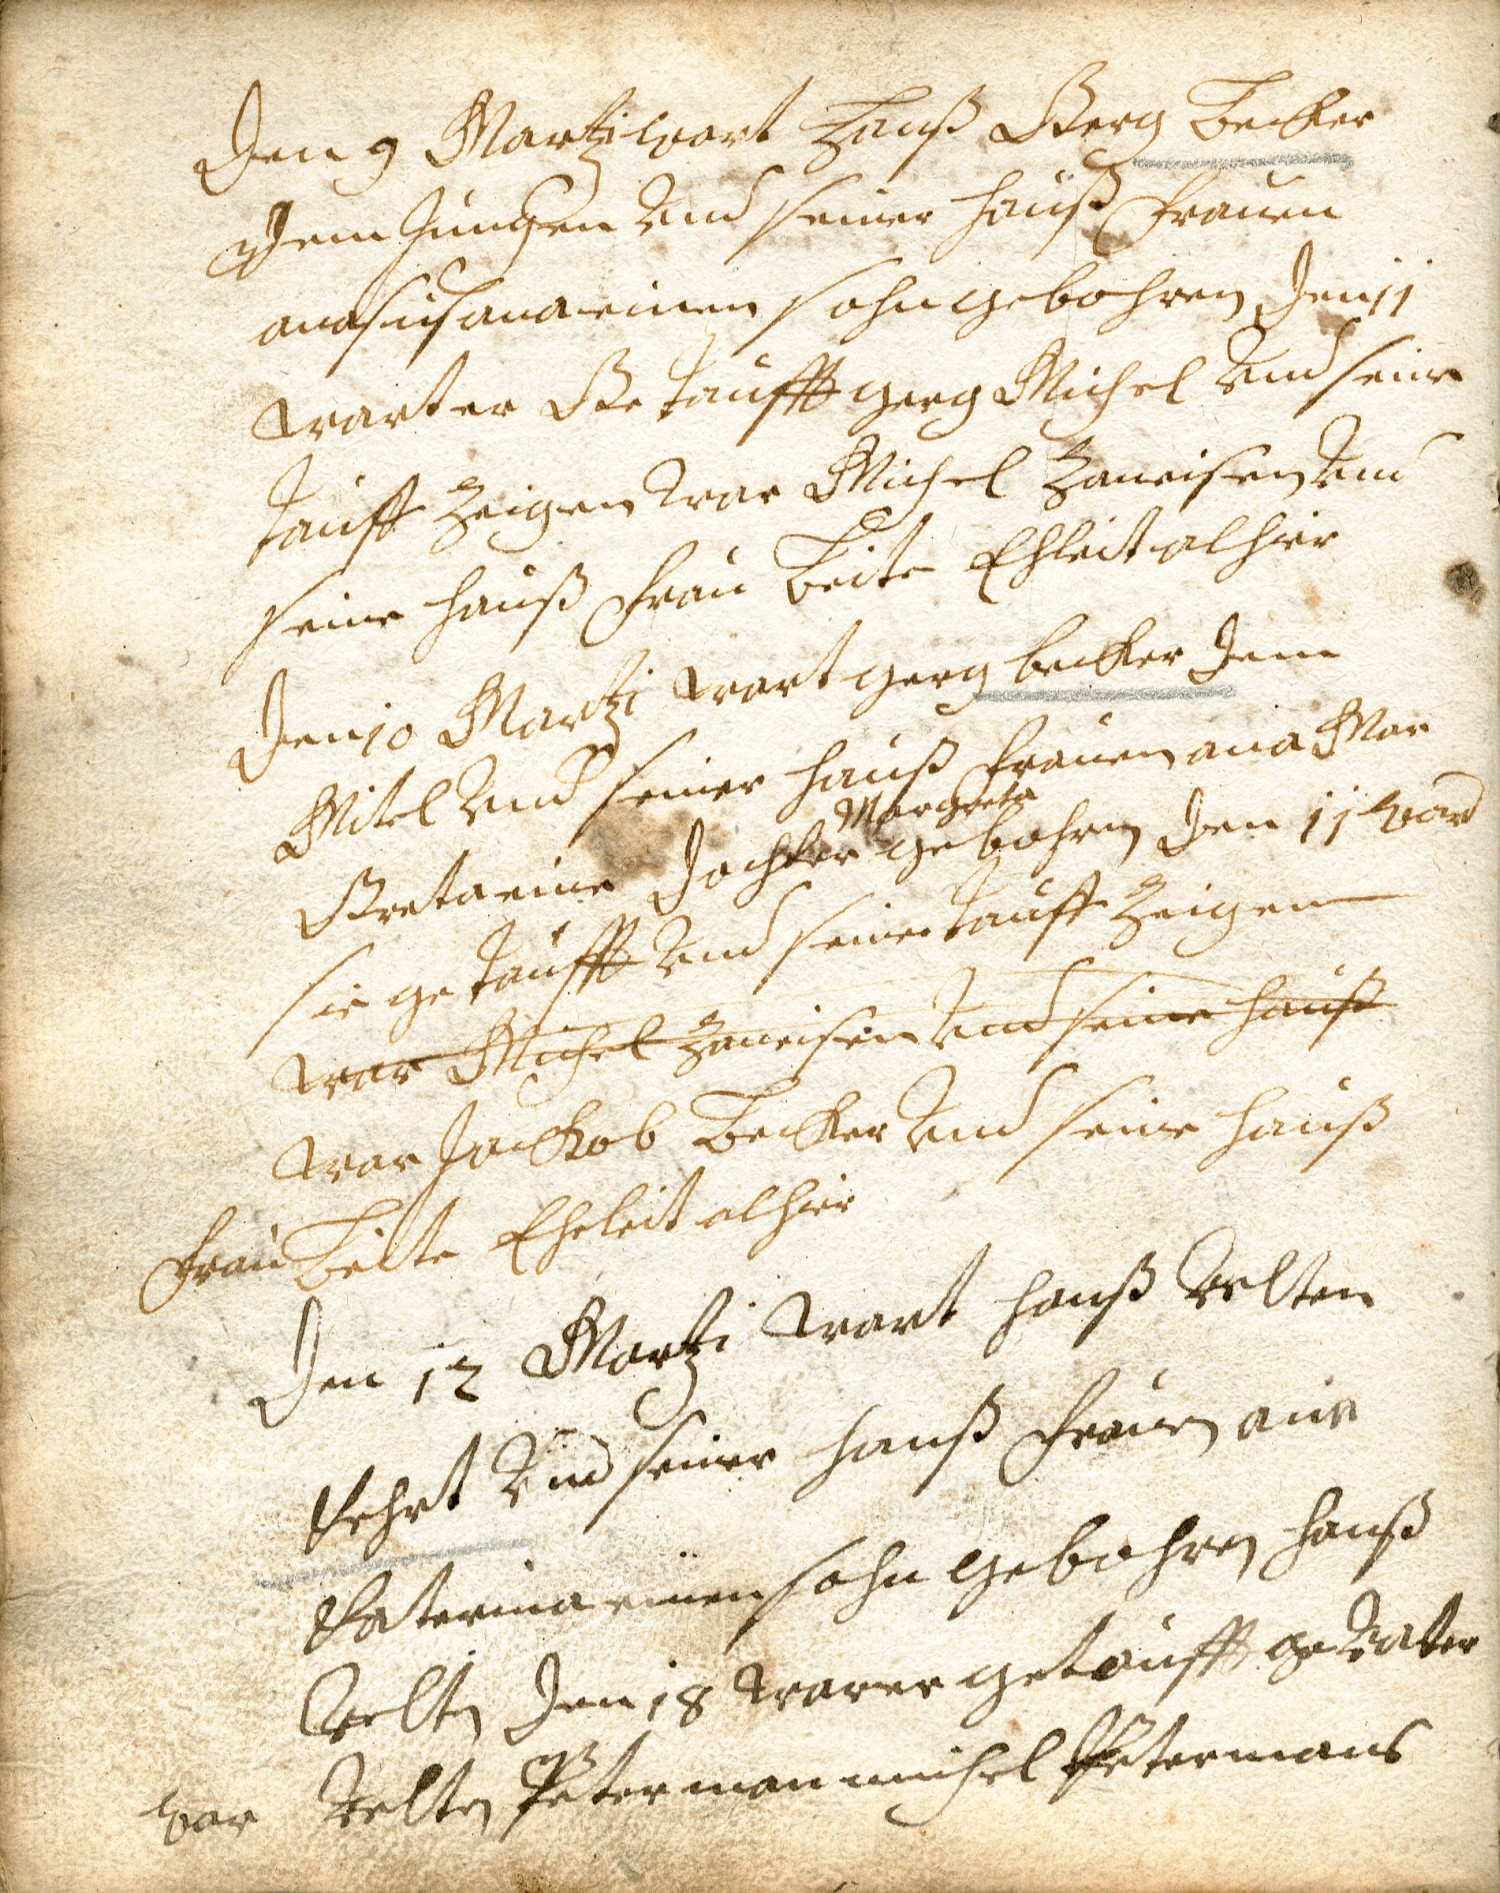 Den 9 Martzi wart Hanß Gerg Becker
Dem Jungen und seiner hauß frauen
ana susana einen sohn gebohren Den 11
wart er Getaufft gerg Michel und seine
tauff Zeigen war Michel Haneisen und
seine hauß frau Beite Ehleit alhier
Den 10 Martzi wart gerg becker Dem
Mitel und seiner hauß frauen ana Mar
Margreta
Greta eine Dochter gebohren Den 11 ward
sie getaufft und seine tauff Zeigen
war Michel Haneisen und seine hauß
war Jackob Becker und seine hauß
frau Beite Eheleit alhier
Den 12 Martzi wart hanß Velten
Kehrt und seiner hauß frauen ane
Katerina einen sohn gebohren hanß
Velten Den 18 war er getaufft ge Vater
war Velten Peterman michel Petermans